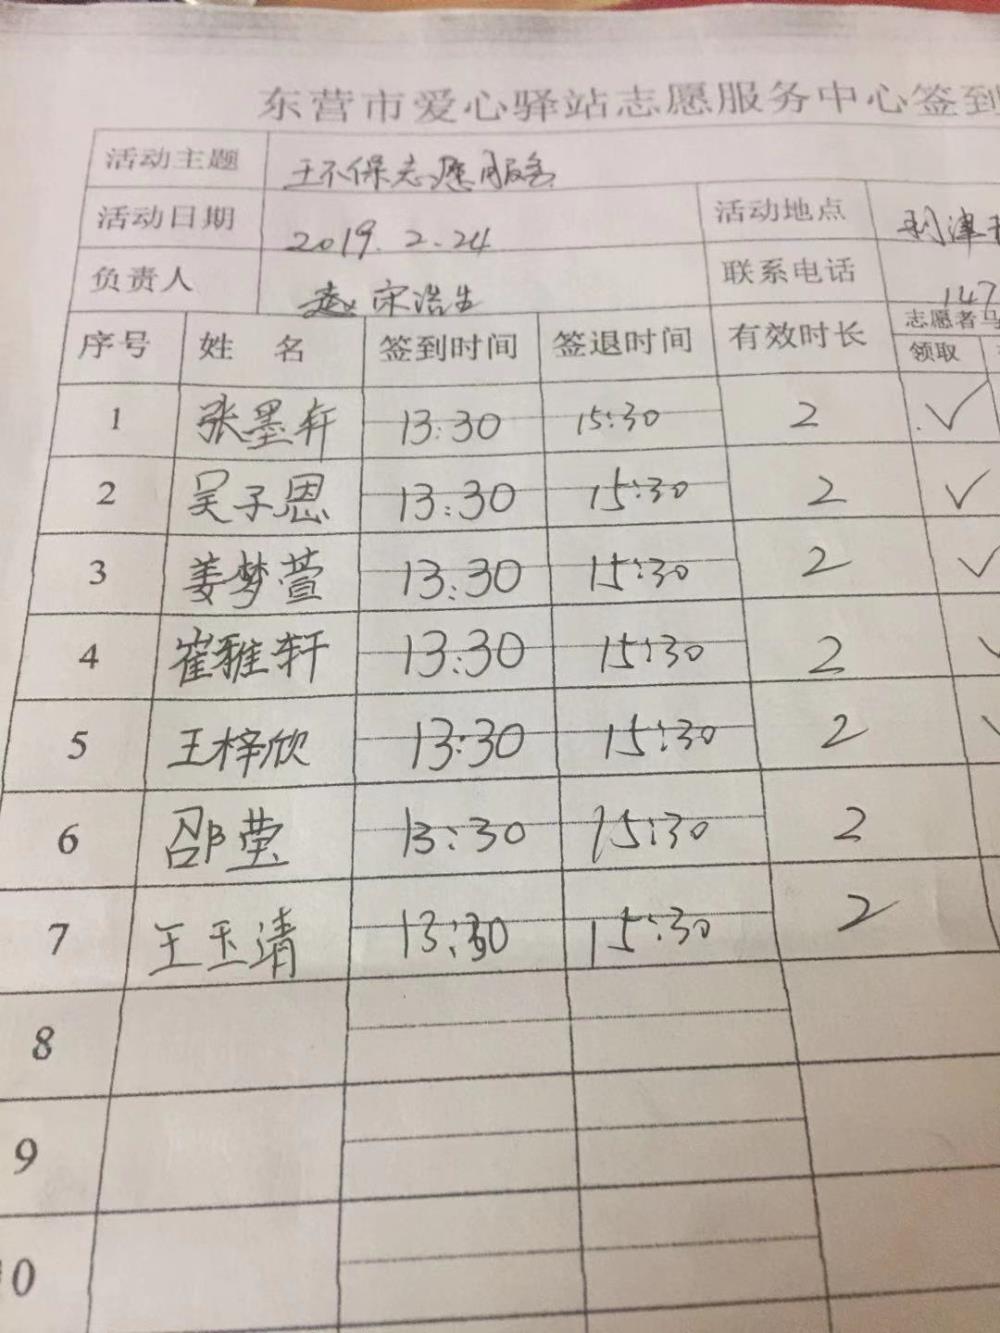 东营市爱心驿站志愿服务中心签到
活动主题 环保志愿服务
活动日期 2019.2.24 活动地点 利津
负责人 宋浩生 联系电话 147
序号 姓名 签到时间 签退时间 有效时长 志愿者马
领取
1 张墨轩 13:30 15:30 2 ✓
2 吴子恩 13:30 15:30 2 ✓
3 姜梦萱 13:30 15:30 2 ✓
4 崔雅轩 13:30 15:30 2
5 王梓欣 13:30 15:30 2
6 邵莹 13:30 15:30 2
7 王玉清 13:30 15:30 2
8
9
10